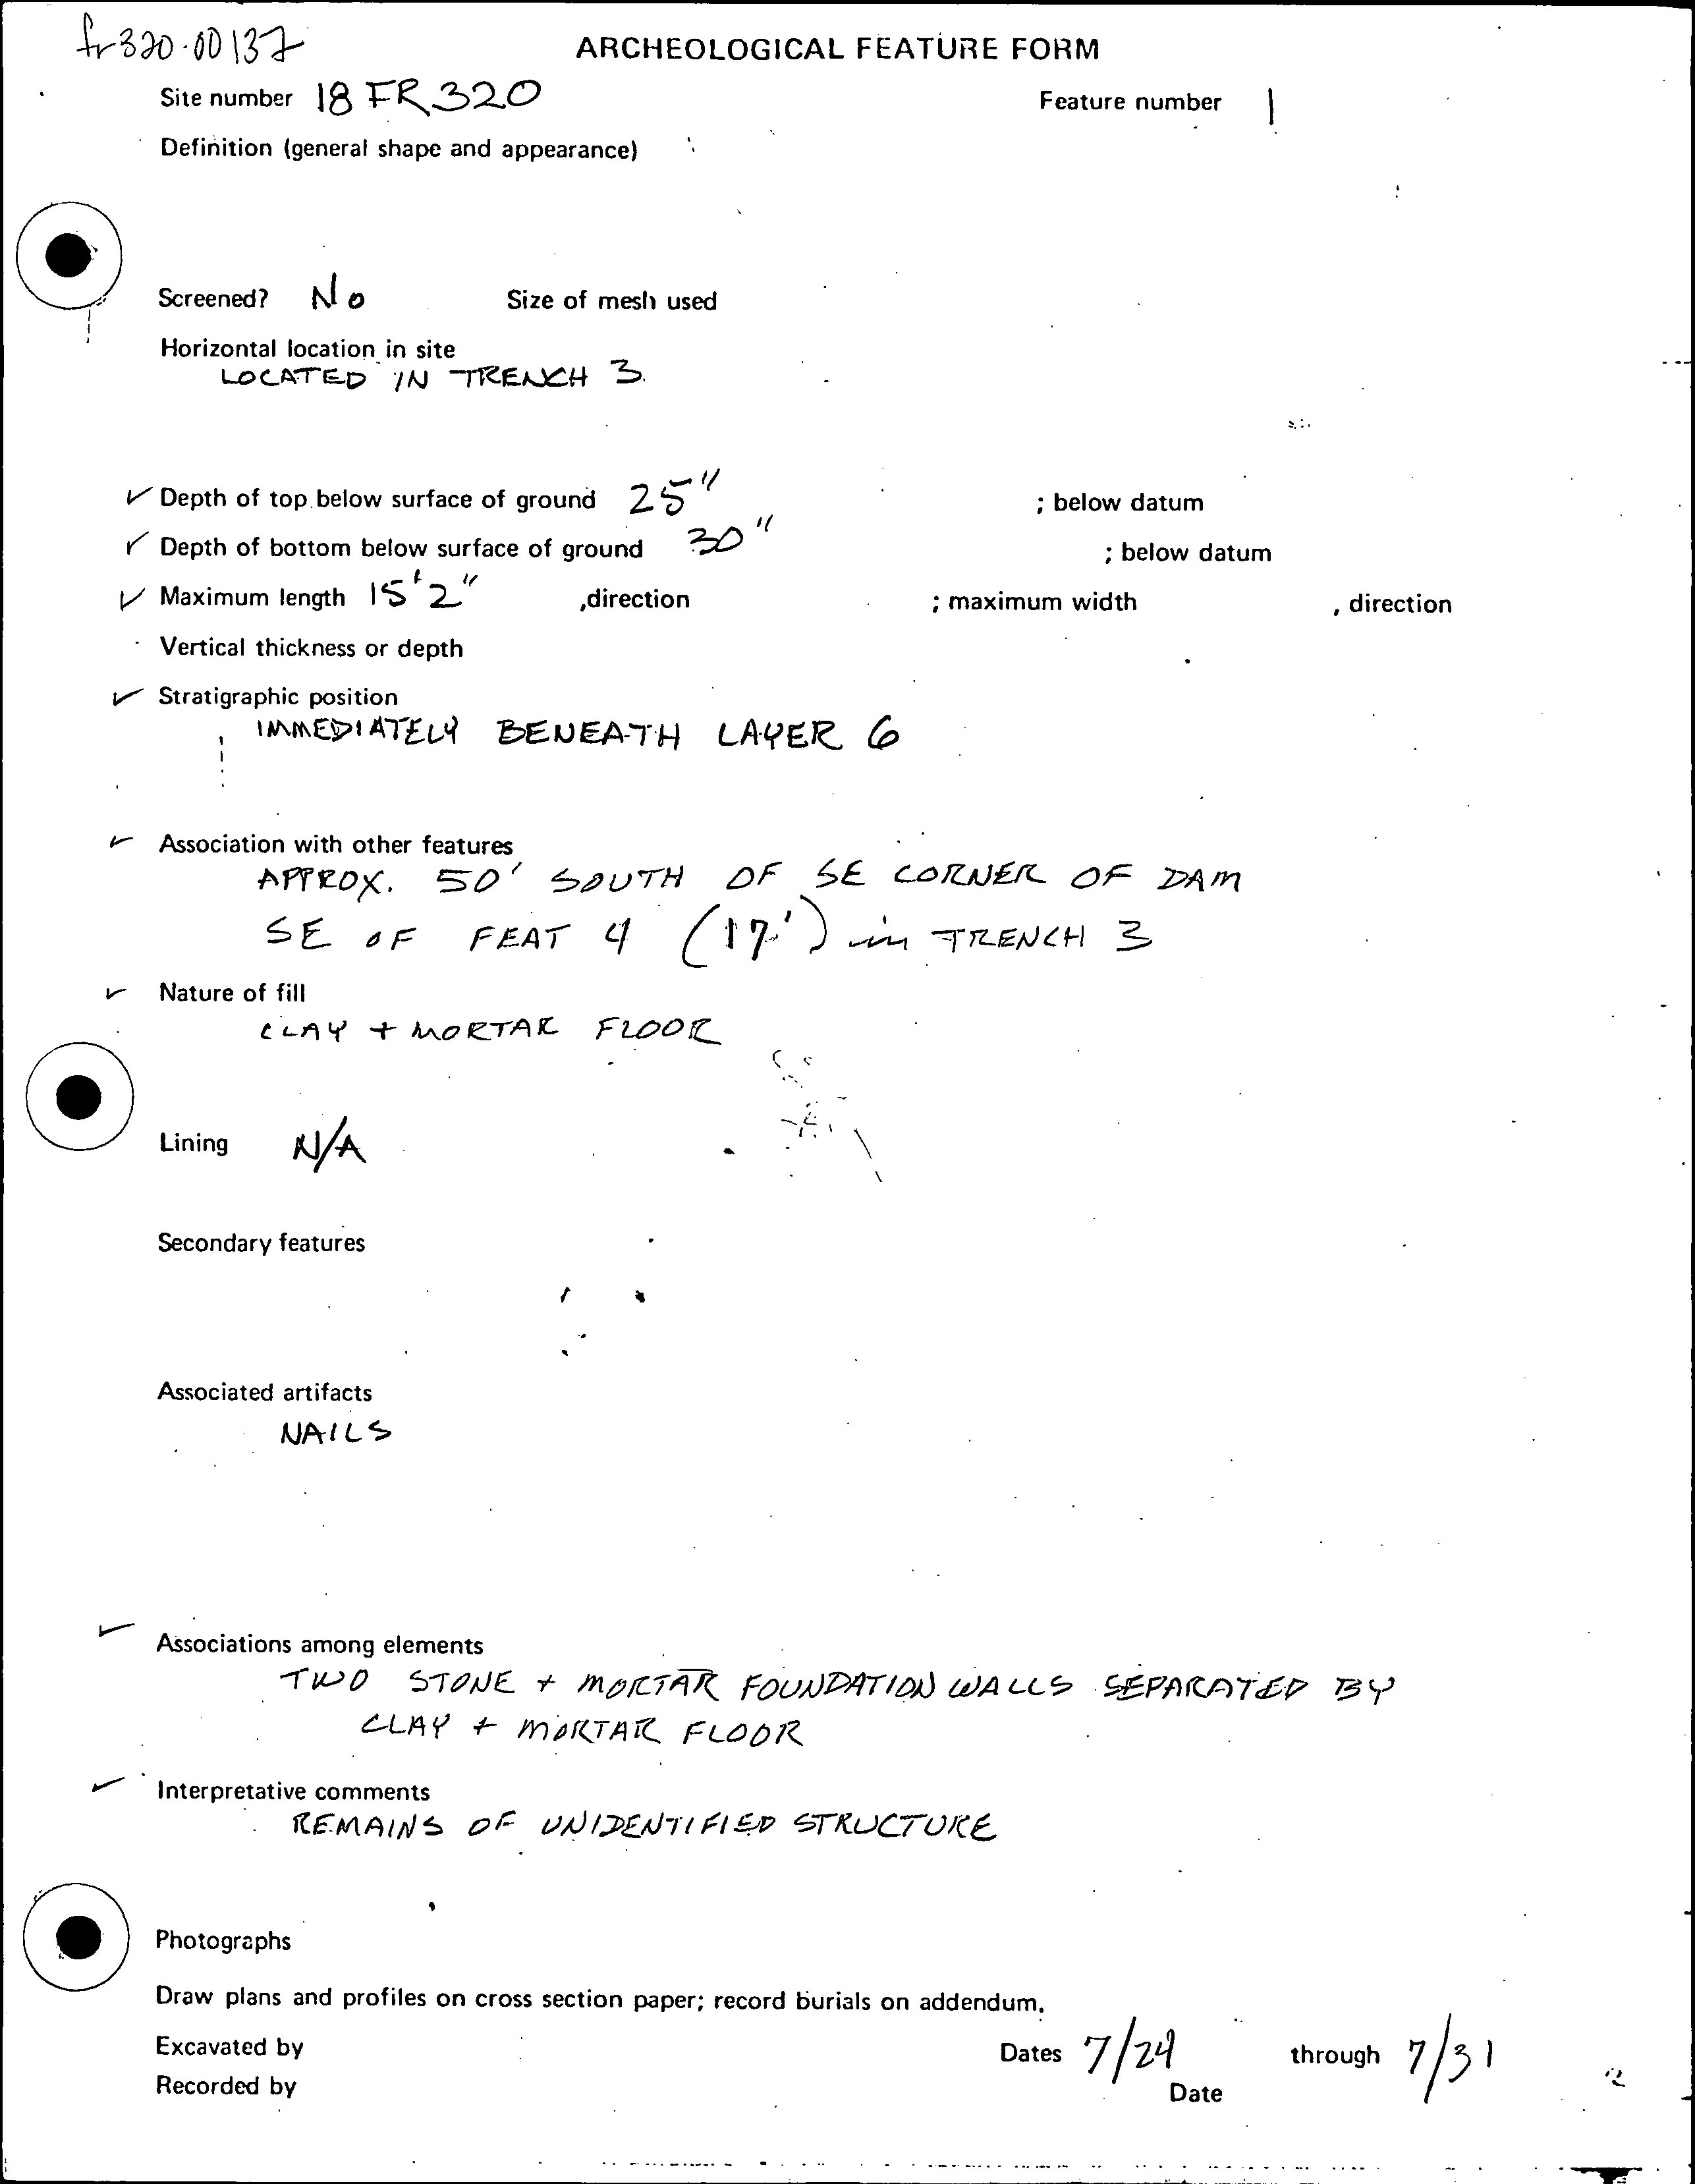 fr320-00137
ARCHEOLOGICAL FEATURE FORM
Site number 18 FR 320 Feature number 1
Definition (general shape and appearance)
Screened? No Size of mesh used
Horizontal location in site
LOCATED IN TRENCH 3.
✓ Depth of top below surface of ground 25" ; below datum
✓ Depth of bottom below surface of ground 30" ; below datum
✓ Maximum length 15'2" ,direction ; maximum width , direction
Vertical thickness or depth
✓ Stratigraphic position
IMMEDIATELY BENEATH LAYER 6
✓ Association with other features
APPROX. 50' SOUTH OF SE CORNER OF DAM
SE OF FEAT 4 (17') in TRENCH 3
✓ Nature of fill
CLAY + MORTAR FLOOR
Lining N/A
Secondary features
Associated artifacts
NAILS
✓ Associations among elements
TWO STONE + MORTAR FOUNDATION WALLS SEPARATED BY
CLAY + MORTAR FLOOR
✓ Interpretative comments
REMAINS OF UNIDENTIFIED STRUCTURE
Photographs
Draw plans and profiles on cross section paper; record burials on addendum.
Excavated by Dates 7/24 through 7/31
Recorded by Date